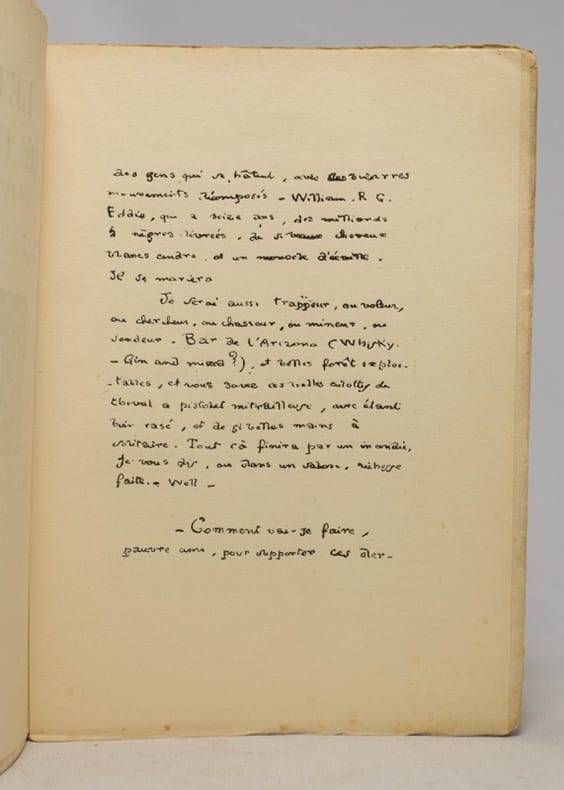 des gens qui se hâtent, avec des bizarres
mouvements décomposés - William. R. G.
Eddie, qui a seize ans, des milliards
& nègres livrées, de si beaux cheveux
blancs cendre, et un monocle d'écaille.
Il se mariera
Je serai aussi trappeur, ou voleur,
ou chercheur, ou chasseur, ou mineur, ou
sondeur. Bar de l'Arizona (Whisky.
- Gin and mixed?), et belles forêt exploi-
-tables, et vous savez ces belles culottes de
cheval à pistolet mitrailleuse, avec étant
bien rasé, et de si belles mains à
solitaire. Tout çà finira par un incendie,
je vous dis, ou dans un salon, richesse
faite. - Well -
- Comment vai-je faire,
pauvre ami, pour supporter ces der-